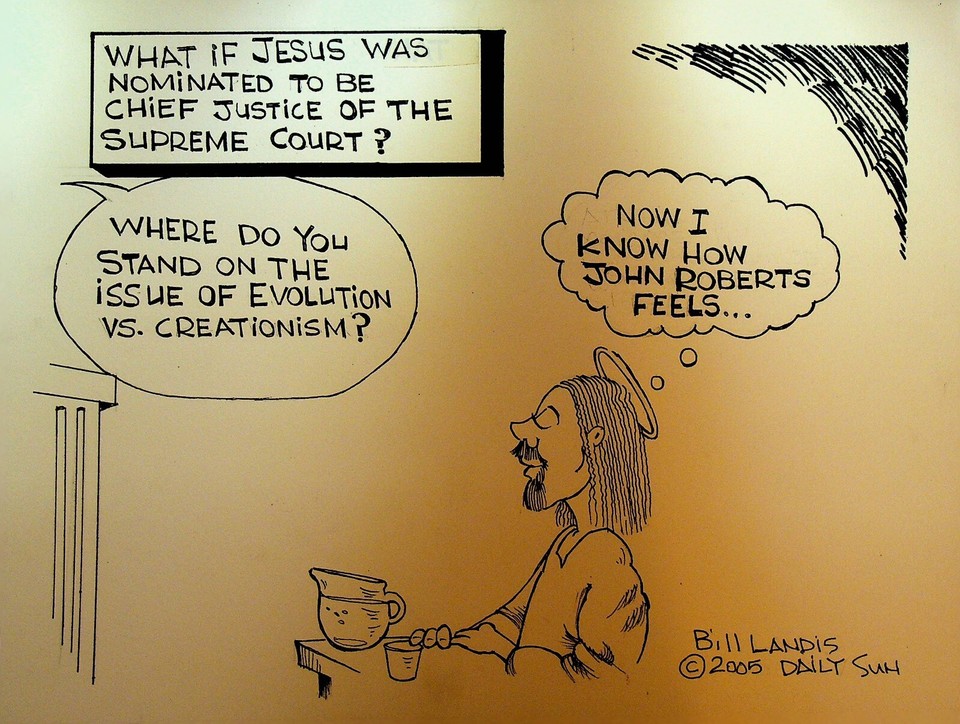 WHAT IF JESUS WAS
NOMINATED TO BE
CHIEF JUSTICE OF THE
SUPREME COURT?
WHERE DO YOU
STAND ON THE
ISSUE OF EVOLUTION
VS. CREATIONISM?
NOW I
KNOW HOW
JOHN ROBERTS
FEELS...
Bill LANDIS
© 2005 DAILY SUN